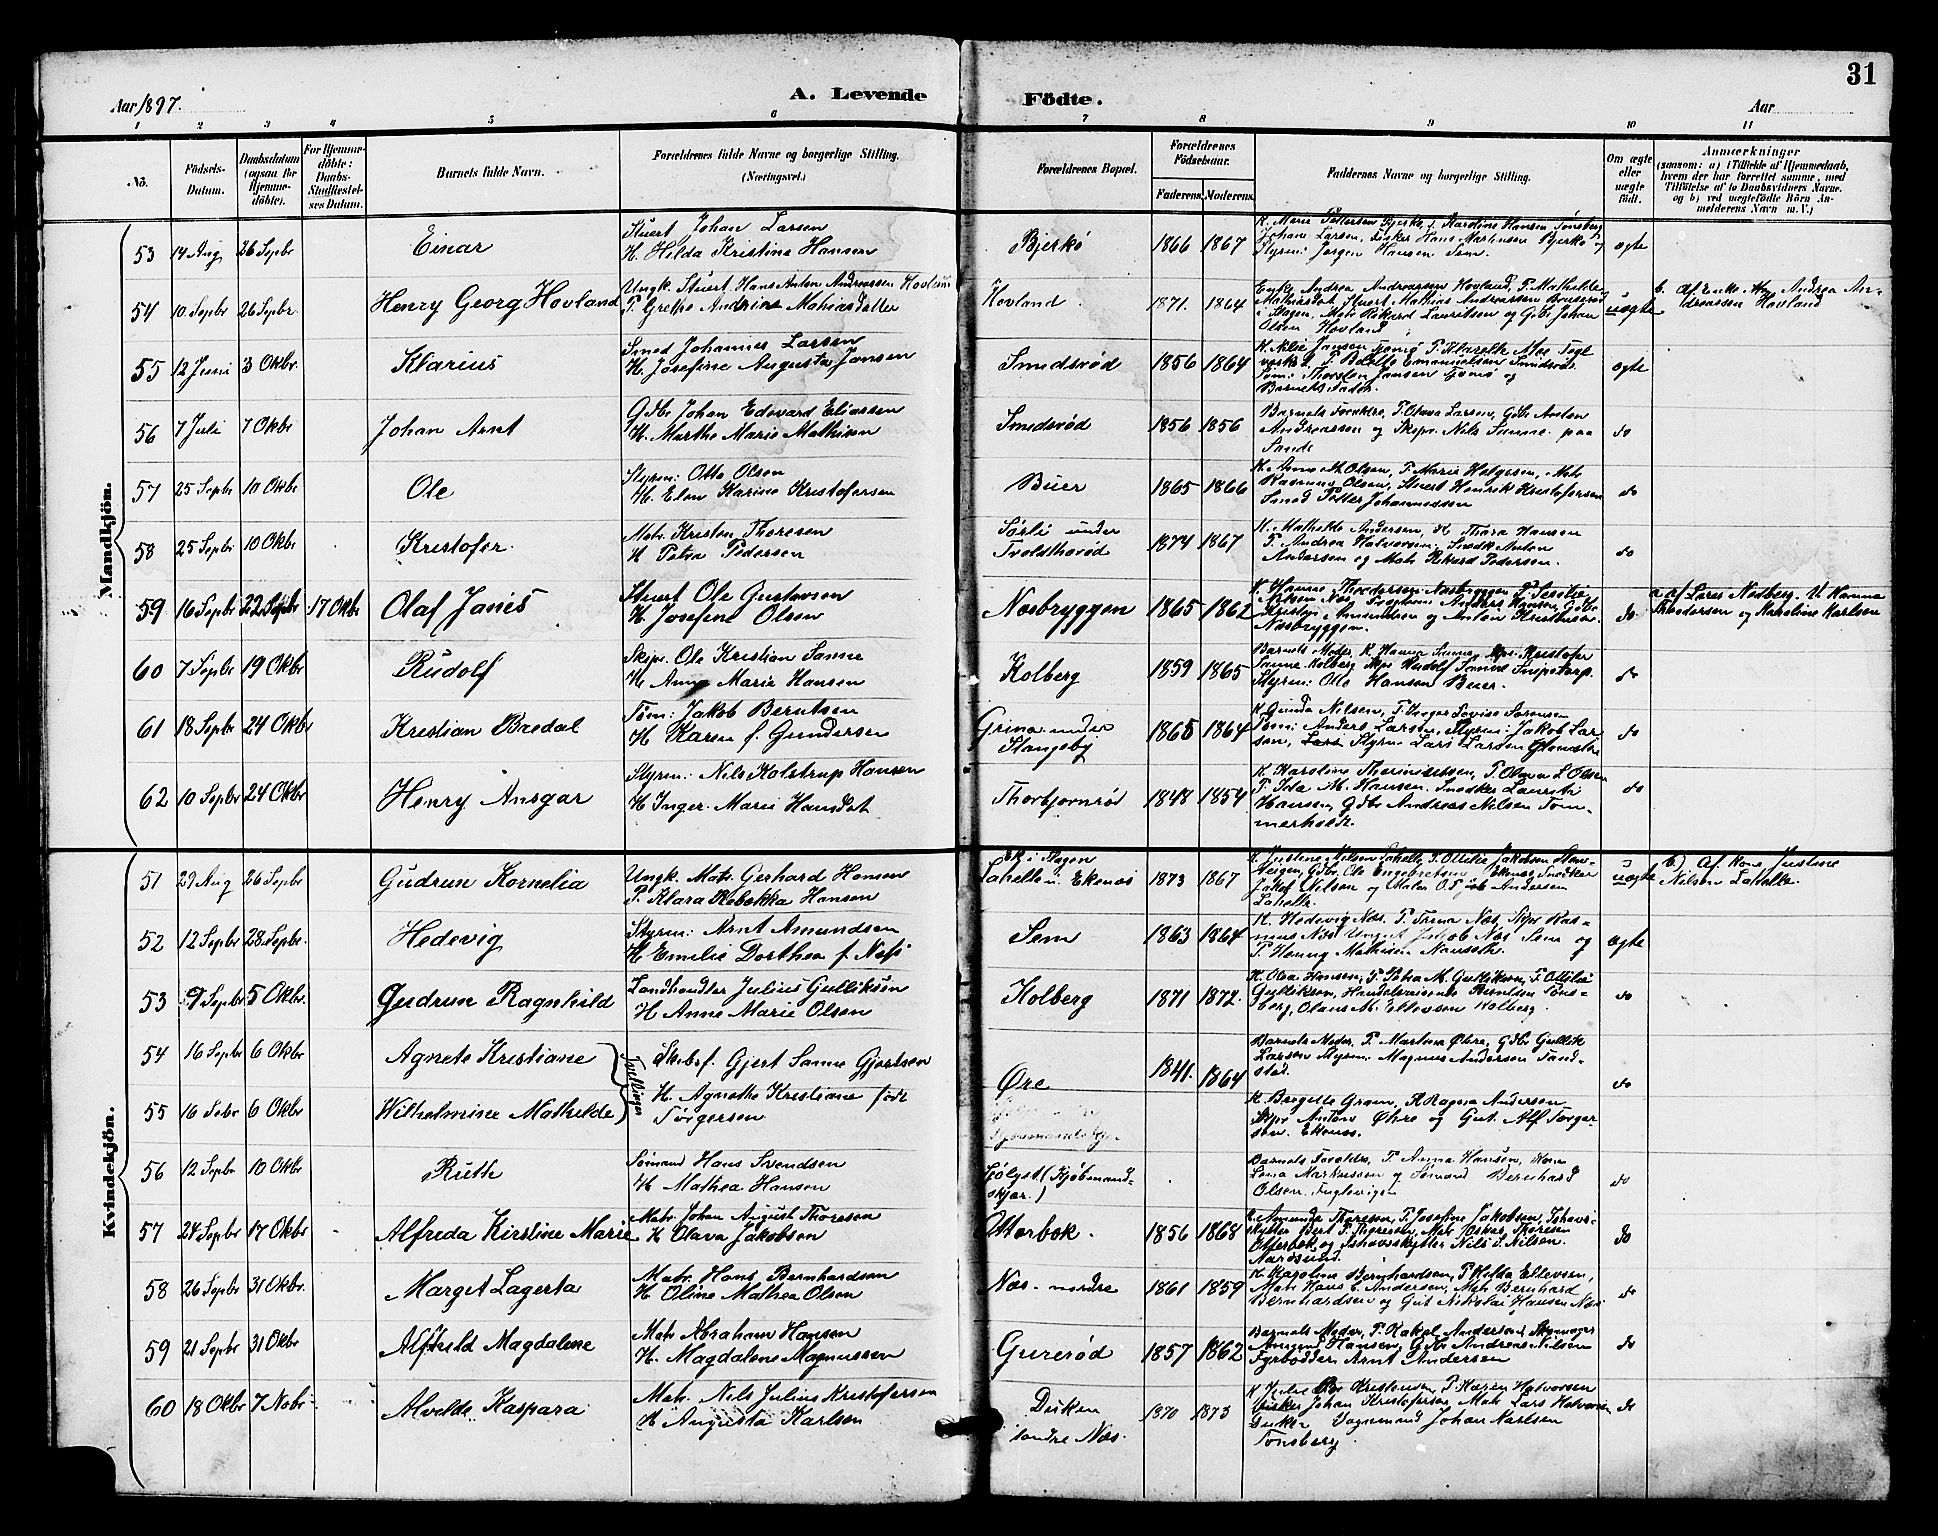 31
Aar 1897.
A. Levende Födte.
Aar
1 2 3 4 5 6 7 8 9 10 11
No.
Födsels-Datum.
Daabsdatum (ogsaa for Hjemmedöbte).
For Hjemmedöbte: Daabs-Stadfæstelses Datum.
Barnets fulde Navn.
Forældrenes fulde Navne og borgerlige Stilling. (Næringsvei.)
Forældrenes Bopæl.
Forældrenes Födselsaar.
Faderens. Moderens.
Faddernes Navne og borgerlige Stilling.
Om ægte eller uægte födt.
Anmærkninger
(saasom: a) i Tilfælde af Hjemmedaab, hvem der har forrettet samme, med Tilföielse af to Daabsvidners Navne. og b) ved uægtefödte Börn Anmelderens Navn m. V.)
Mandkjön.
53 14 Aug 26 Sepbr Einar
Stuert Johan Larsen
H. Hilda Kristine Hansen
Bjerkö 1866 1867
Johan Larsen, Fisker Hans Martinsen Bjerkö og
Styrm: Jørgen Hansen Sem.
ægte
54 10 Sepbr 26 Sepbr. Henry Georg Hovland
Ungk. Stuert Hans Anton Andreassen Hovland
P. Grethe Andrine Mathiasdatter
Hovland 1871. 1864
Enke Andrea Andreassen Hovland, P. Mathilde
Mathiasdat, Stuert Mathias Andreassen
i Slagen, Matr Rikard Lauritsen og Gdbr Johan
Olsen Hovland
uægte
b. Af Enke Andrea An-
dreassen Hovland
55 12 Juni 3 Okbr. Klarius
Smed Johannes Larsen
H. Josefine Augusta Jansen
Smedsrød 1856 1864
Tøm: Thorsten Jansen Tjømø og
Barnets Fader.
ægte
56 7 Juli 7 Okbr Johan Arnt
Gdbr Johan Edevard Eliassen
H. Marthe Marie Mathisen
Smedsrød 1856 1856
Barnets Forældre, P. Olava Larsen, Gdbr Anton
Andreassen og Skipr. Nils Sanne paa
Sande
do
57 25 Sepbr 10 Okbr Ole
Styrm: Otto Olsen
H. Elen Karine Kristofersen
Buer 1865 1866
K. Anne M Olsen, P. Marie Helgesen, Matr
Rasmus Olsen, Stuert Henrik Kristofersen
Smed Petter Johannessen
do
58 25 Sepbr 10 Okbr Kristofer.
Matr. Kristen Thoresen
H Petra Pedersen
Sørli under
Tvoldthorød 1874 1867
K. Mathilde Andersen, K Thora Hansen
P. Andrea Halvorsen, Snedk Anton
Andersen og Matr Rikard Pedersen.
do
59 16 Sepbr 22 Sepbr 17 Okbr Olaf Janes
Stuert Ole Gustavsen
H Josefine Olsen
Næsbryggen 1865 1862
Næsbryggen.
do
a. af Lars Næsberg. V. Hanna
Theodorsen og Karoline Karlsen
60 7 Sepbr 19 Okbr Rudolf
Skipr. Ole Kristian Sanne
H Anna Marie Hansen
Kolberg 1859 1865
Barnets Moder, K Hanna Sanne, Skpr. Kristofer
Sanne Kolberg Skpr Rudolf Sanne
Styrm: Otto Hansen Buer.
do
61 18 Sepbr 24 Okbr Kristian Bredal
Tøm: Jakob Berntsen
H Karen f. Gundersen
Grima under
Stangeby 1865 1864
K Gunda Nilsen, P. Inger Lovise Sørensen
Tøm: Anders Larsen, Styrm: Jakob Lar
sen, Styrm Lars Larsen
do
62 10 Sepbr 24 Okbr Henry Ansgar
Styrm: Nils Kolstrup Hansen
H Inger Marie Hansdat
Thorbjørnrød 1848 1854
K. Karoline P. Olava L Olsen
P. Ida M. Hansen, Snedker Laurits
Hansen, Gdbr Andreas Nilsen Tom-
merholdt.
do
Kvindekjön.
51 29 Aug 26 Sepbr Gudrun Kornelia
Ungk. Matr. Gerhard Hansen
P. Klara Rebekka Hansen
Ek i Slagen
Lahelle: Ekenæs 1873 1867
K. Justine Nilsen Lahelle, P. Ottilie Jakobsen
Gdbr. Ole Engebretsen Ekenæs Snedker
Jakob Nilsen og Maler Andersen
Lahelle.
uægte
b.) Af Kone Justine
Nilsen Lahelle.
52 12 Sepbr 28 Sepbr. Hedevig
Styrm: Arnt Amundsen
H Emilie Dorthea f. Næss
Sem 1863 1864
K. Hedevig Næs. P. Trina Næs, Skpr Ras-
mus Næs Ungk Jakob Næs Sem og
P. Henny Mathisen
ægte
53 9 Sepbr 5 Okbr. Gudrun Ragnhild
Landhandler Julius Gulliksen
H Anne Marie Olsen
Kolberg 1871 1872.
K. Olea Hansen, P. Petra M. Gulliksen, P. Ottilie
Gulliksen, Handelsreisende Tøns-
berg, Olaus M. Ellevsen Kolberg.
do
54 16 Sepbr 6 Okbr Agnete Kristiane
55 16 Sebr 6 Okbr Wilhelmine Mathilde
Tvillinger
Skibsf. Gjert Sanne Gjertsen
H. Agnethe Kristiane født
Torgersen
Øre 1841. 1864
Barnets Moder, P. Martine Øhre, Gdbr Gullik
Larsen Styrm: Magnus Andersen Sand-
stad.
K. Bergette Gram, P. Ragna Andersen
Skpr Anton Øhre og Gut. Alf Torger-
sen. Ekenæs.
do
56 12 Sepbr 10 Okbr Ruth
Sømand Hans Svendsen
H Mathea Hansen
(Kjøbmand-
skjær.)
Barnets Forældre, P. Anna Hansen, Kone
Lena Markussen og Sømand Bernhard
Olsen, Fuglevigen
do
57 24 Sepbr 17 Okbr Alfreda Kirstine Marie
Matr. Johan August Thoresen
H Olava Jakobsen
Atterbok. 1856 1868
K. Amunda Thoresen, P. Josefine Jakobsen, Ishavs-
skytter Bert P. Thoresen, Matr Oskar Thoresen
Etterbok og Ishavsskytter Nils P. Nilsen.
Aarøsund.
do
58 26 Sepbr 31 Okbr Margit Lagerta
Matr. Hans Bernhardsen
H. Oline Mathea Olsen
Næs nordre 1861 1859
K Karoline Bernhardsen, P. Hilda Ellevsen,
Matr Hans E. Andersen, Matr Bernhard
Bernhardsen og Gut Nikolai Hansen Næs
do
59 21 Sepbr 31 Okbr Alfhild Magdalene
Matr Abraham Hansen
H. Magdalene Magnussen
Gurerød 1857 1862
Barnets Moder, P. Rakel Andersen, Skomager
Amund Hansen, Gdbr Andreas Nilsen
Fyrbødder Arnt Andersen
do
60 18 Okbr 7 Nobr Alvilde Kaspara
Matr. Nils Julius Kristofersen
H Augusta Karlsen
Duken
søndre Næs. 1870 1873
Kristensen, P Karen Halvorsen
Fisker Johan Kristofersen, Matr Lars Halvorsen
Duken Johan Karlsen
Tønsberg
do